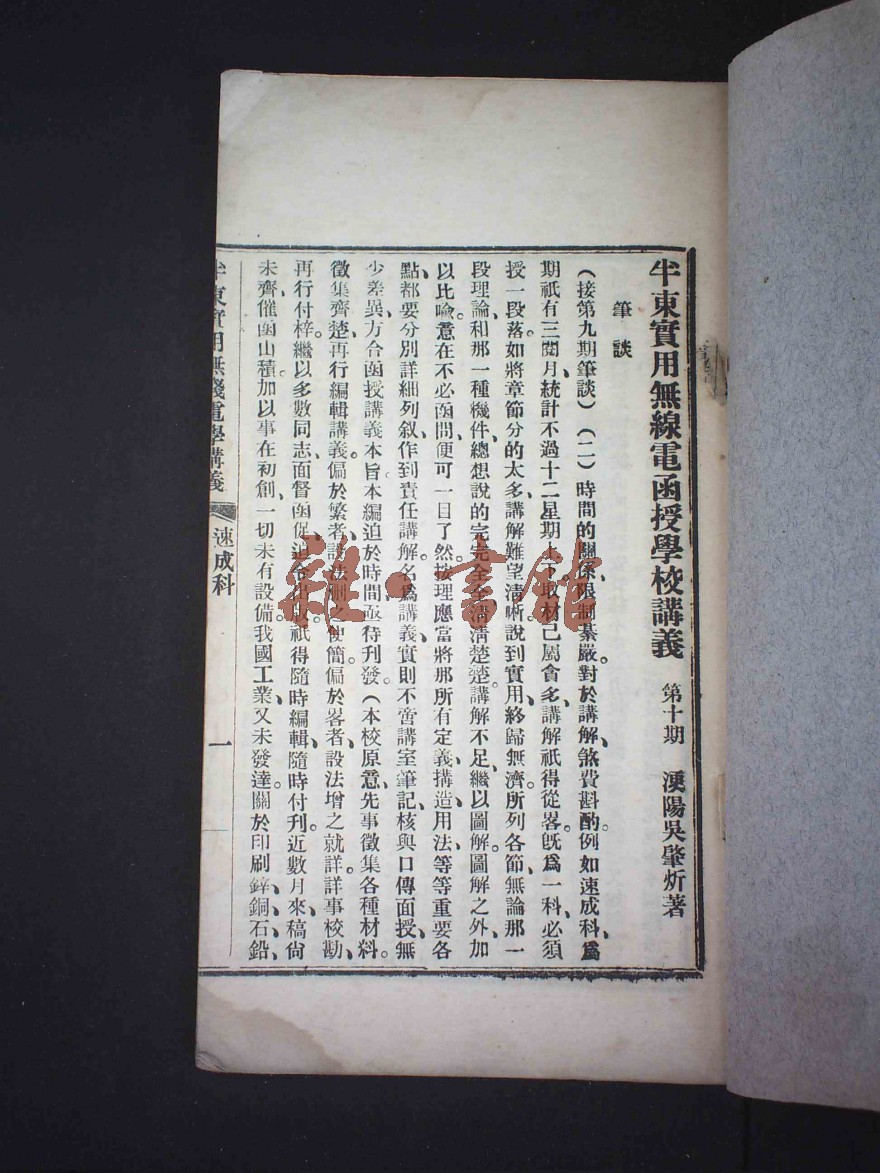 半東實用無線電函授學校講義 第十期 湙陽吳肇炘著
筆談
(接第九期筆談)(二)時間的關係限制綦嚴對於講解、煞費斟酌。例如速成科、爲
期祇有三閱月、統計不過十二星期上下取材已屬會多、講解祇得從畧、旣爲一科、必須
授一段落、如將章節分的太多、講解難望清晰、說到實用、終歸無濟。所列各節、無論那一
段理論、和那一種機件、總想說的完完全全清清楚楚、講解不足、繼以圖解、圖解之外、加
以比喩、意在不必函問、便可一目了然。按理應當將那所有定義、搆造、用法、等等重要各
點、都要分別詳細列叙、作到責任講解。名爲講義、實則不啻講室筆記、核與口傳面授、無
少差異、方合函授講義本旨。本編迫於時間、亟待刊發、(本校原意、先事徵集各種材料。
徵集齊楚、再行編輯講義、偏於繁者、設法刪之使簡、偏於畧者、設法增之就詳、詳事校勘、
再行付梓、繼以多數同志、面督函促、迫令出版、祇得隨時編輯、隨時付刊。近數月來、稿尙
未齊、催函山積、加以事在初創、一切未有設備、我國工業、又未發達。關於印刷、鋅、銅、石、鉛、
半東實用無綫電學講義 速成科 一
雜·書館